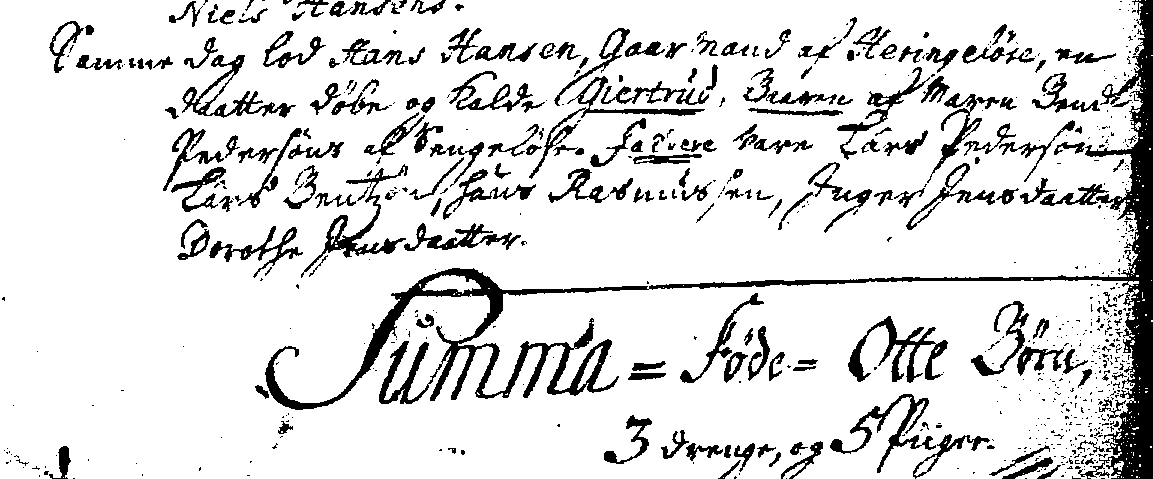 Niels Hansens.
Samme dag lod Hans Hansen, Gaarmand af Heringeløse, en
daatter døbe og kalde Giertrud, Baaren af Maren Bendt
Pedersøns af Sengeløse. Faddere vare Lars Pedersøn,
Lars Bentzøn, Hans Rasmussen, Inger Jensdaatter,
Dorothe Jensdaatter.
Summa = Føde = Otte Børn,
3 drenge, og 5 Piiger.